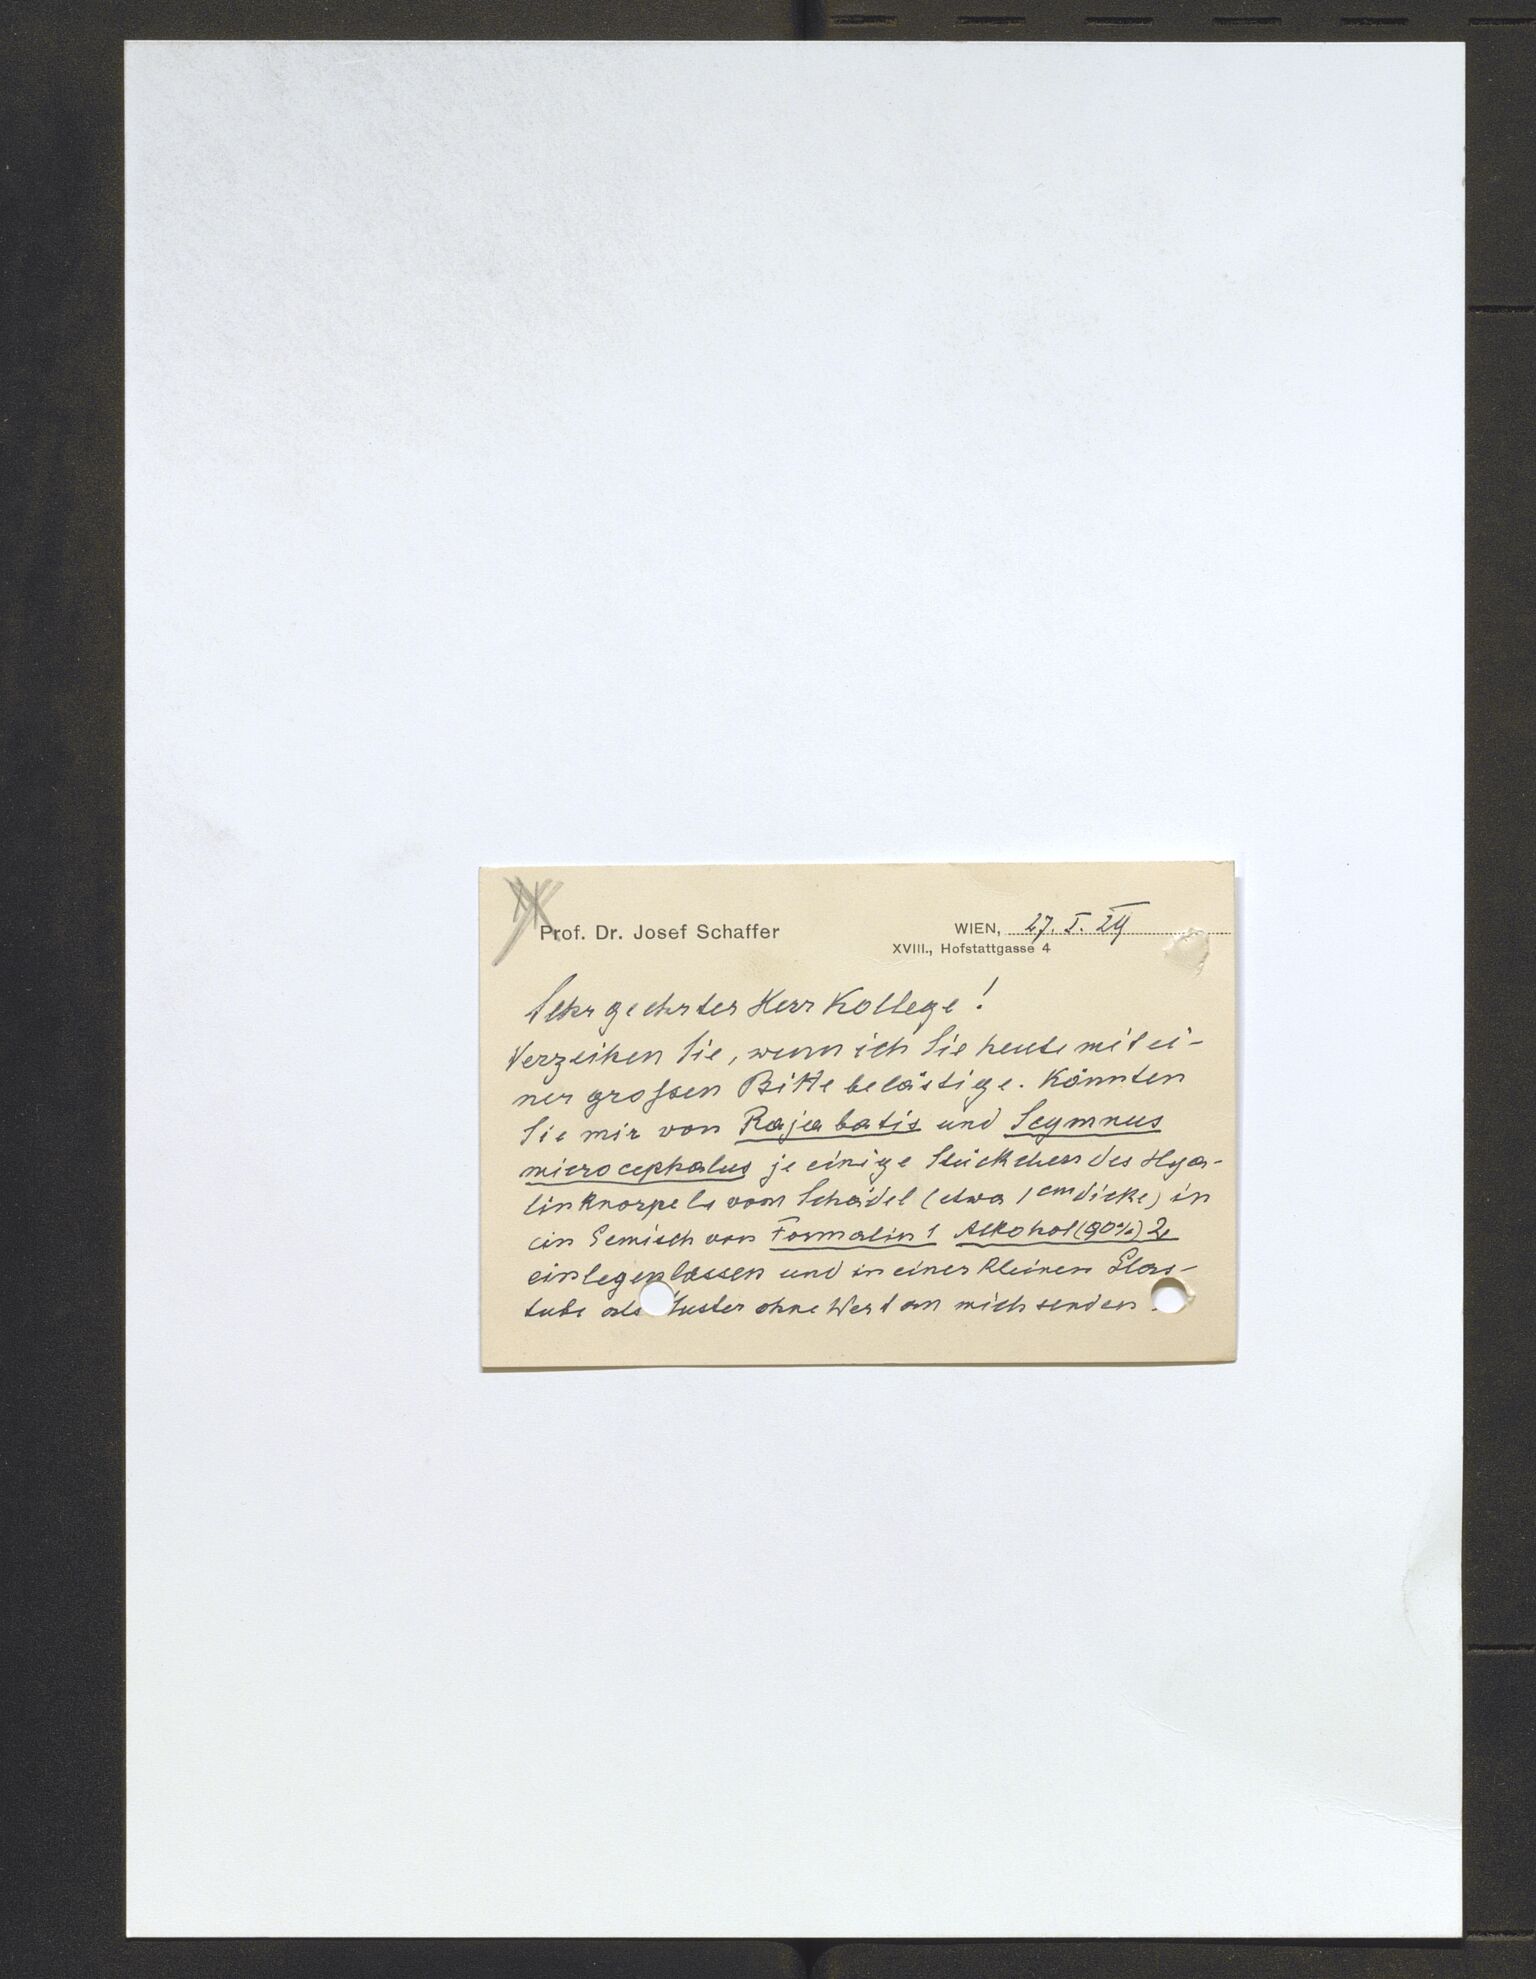 Prof. Dr. Josef Schaffer
WIEN, 27. I. 29
XVIII., Hofstattgasse 4
Sehr geehrter Herr Kollege!
Verzeihen Sie, wenn ich Sie heute mit ei-
ner groſsen Bitte belästige. Könnten
Sie mir von Raja batis und Scymnus
microcephalus je einige Stückchen des Hya-
linknorpels vom Schädel (etwa 1 cm dicke) in
ein Gemisch von Formalin 1 Alkohol (90%) 2
einlegen lassen und in einer kleinen Glas-
tube als Muster ohne Wert an mich senden.